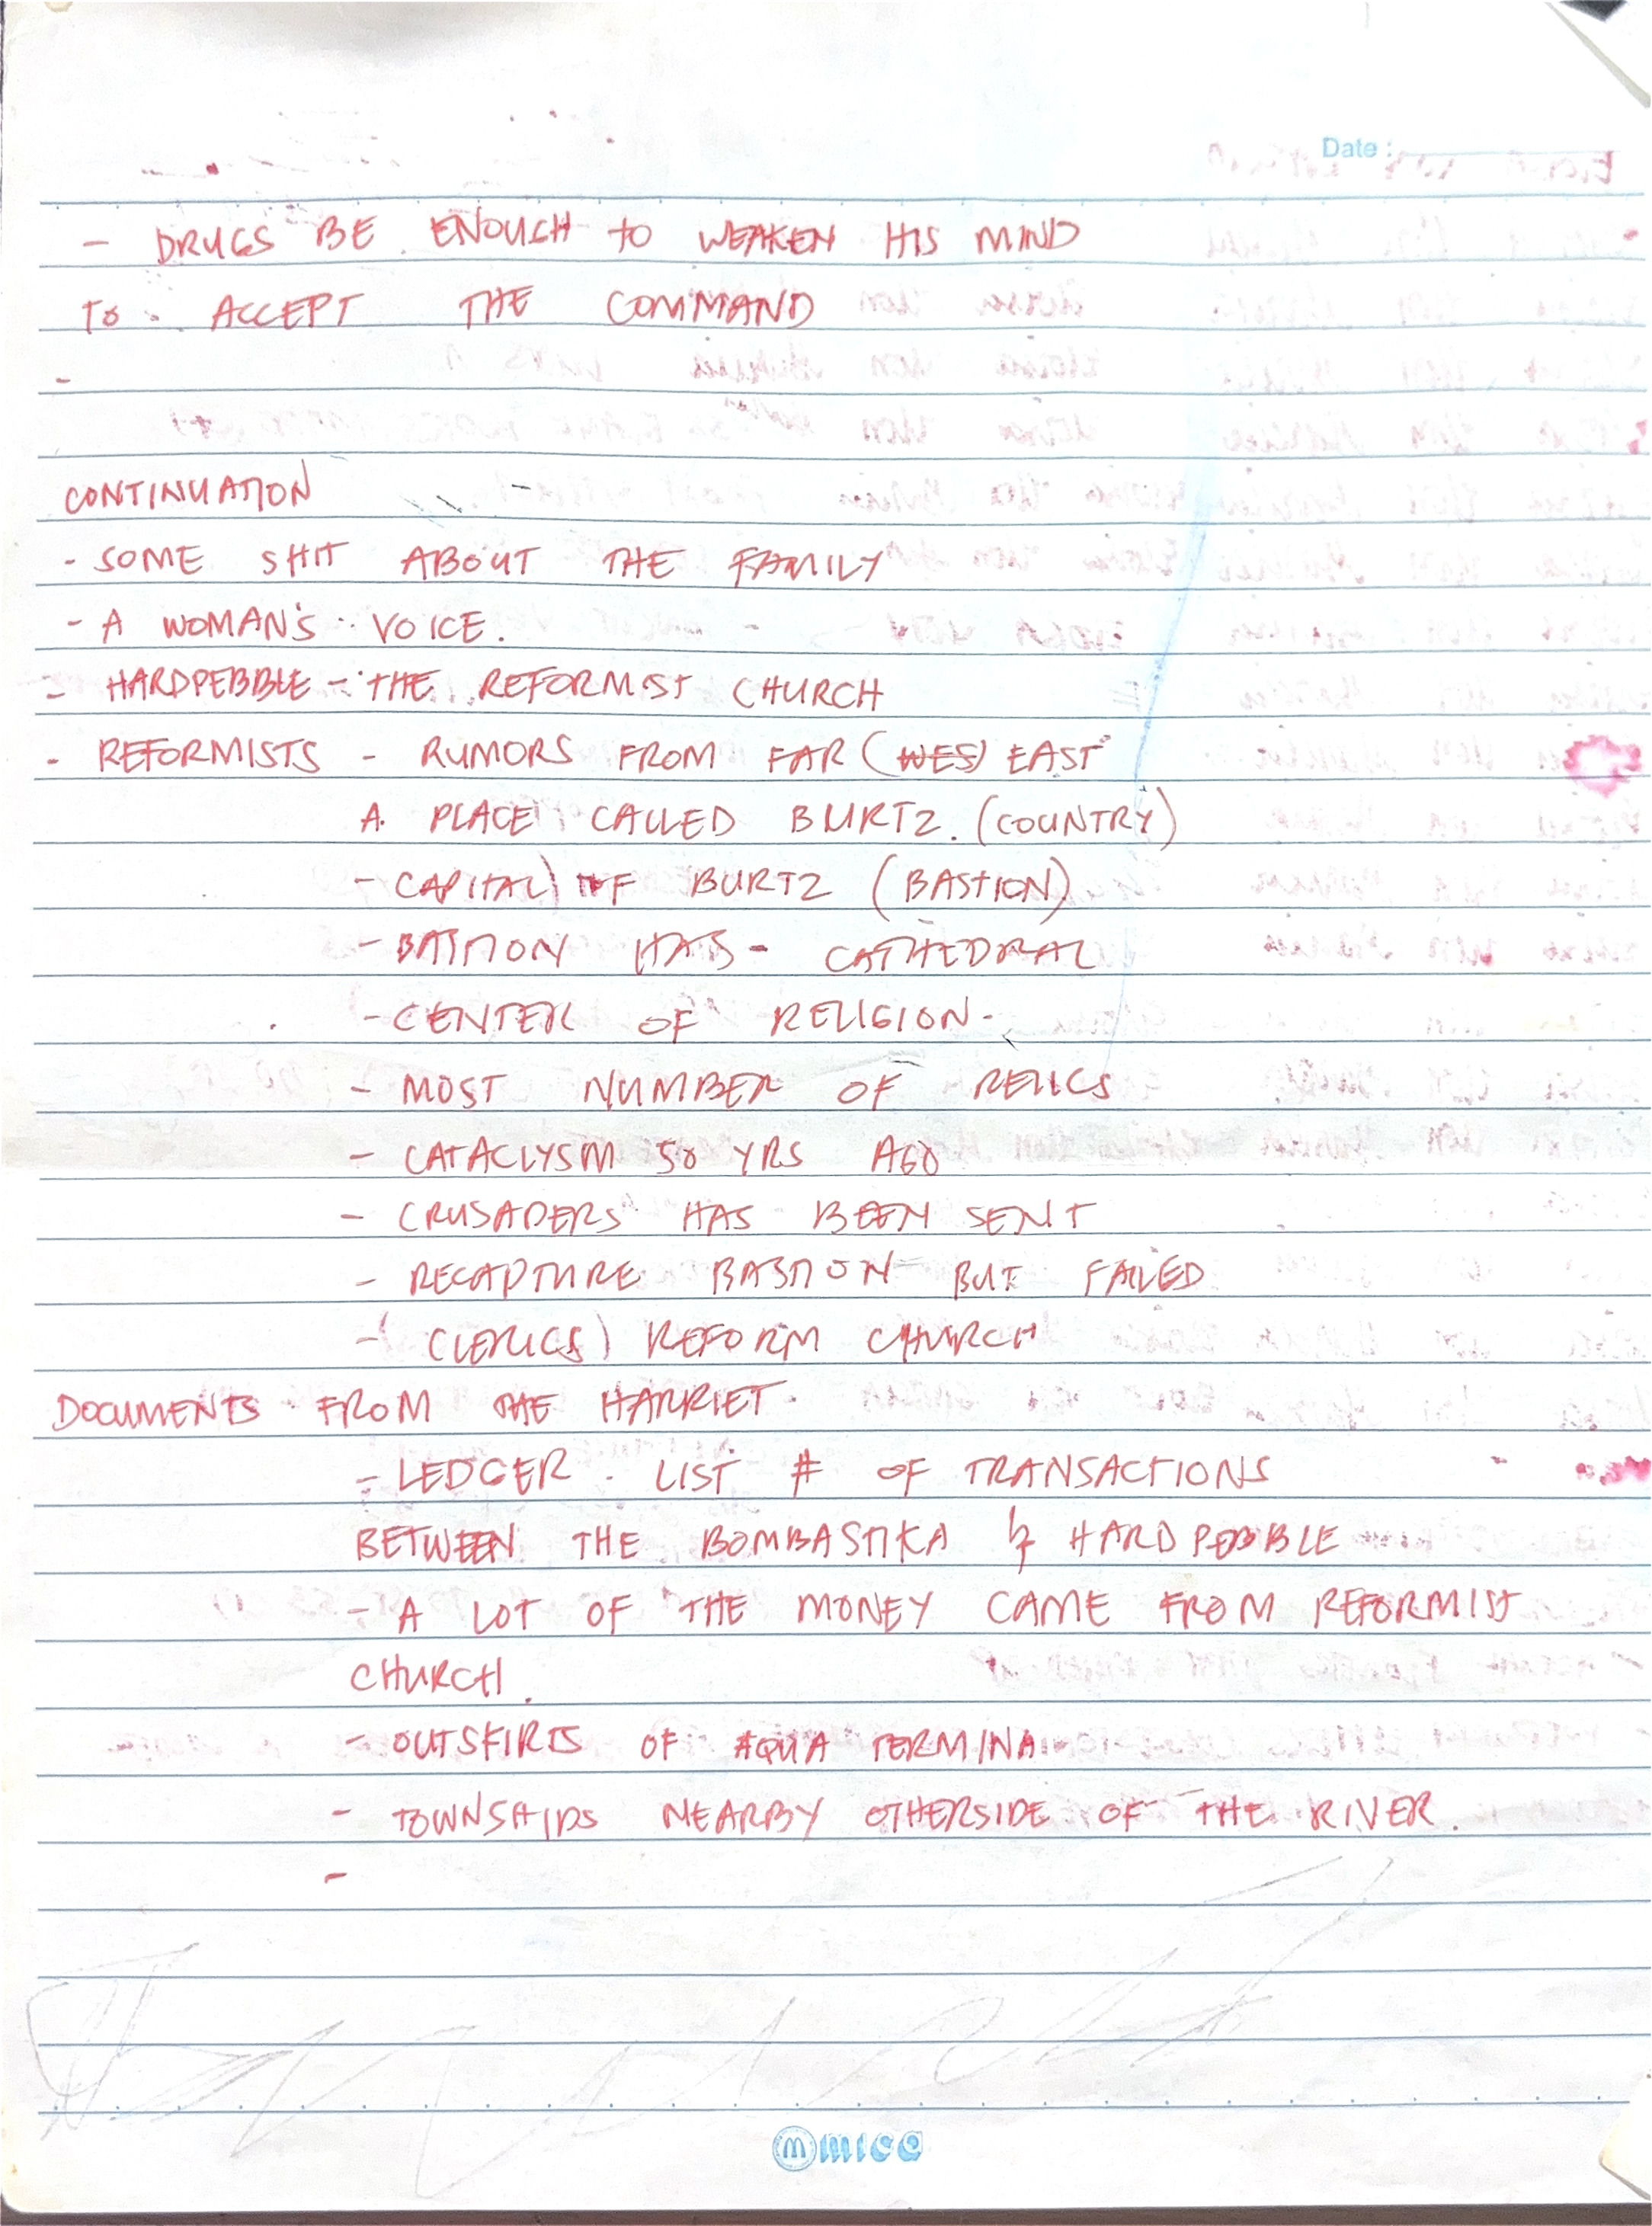 Date :
- DRUGS BE ENOUGH TO WEAKEN HIS MIND
TO ACCEPT THE COMMAND
-
CONTINUATION
- SOME SHIT ABOUT THE FAMILY
- A WOMAN'S VOICE.
- HARDPEBBLE - THE REFORMIST CHURCH
- REFORMISTS - RUMORS FROM FAR (WES) EAST
A PLACE CALLED BURTZ. (COUNTRY)
- CAPITAL) OF BURTZ (BASTION)
- BASTION HAS - CATHEDRAL
- CENTER OF RELIGION.
- MOST NUMBER OF RELICS
- CATACLYSM 50 YRS AGO
- CRUSADERS HAS BEEN SENT
- RECAPTURE BASTION BUT FAILED
- (CLERICS) REFORM CHURCH
DOCUMENTS FROM THE HARRIET.
- LEDGER . LIST # OF TRANSACTIONS
BETWEEN THE BOMBASTIKA & HARDPEBBLE
- A LOT OF THE MONEY CAME FROM REFORMIST
CHURCH.
- OUTSKIRTS OF AQUA TERMINA
- TOWNSHIPS NEARBY OTHERSIDE OF THE RIVER.
-
mica